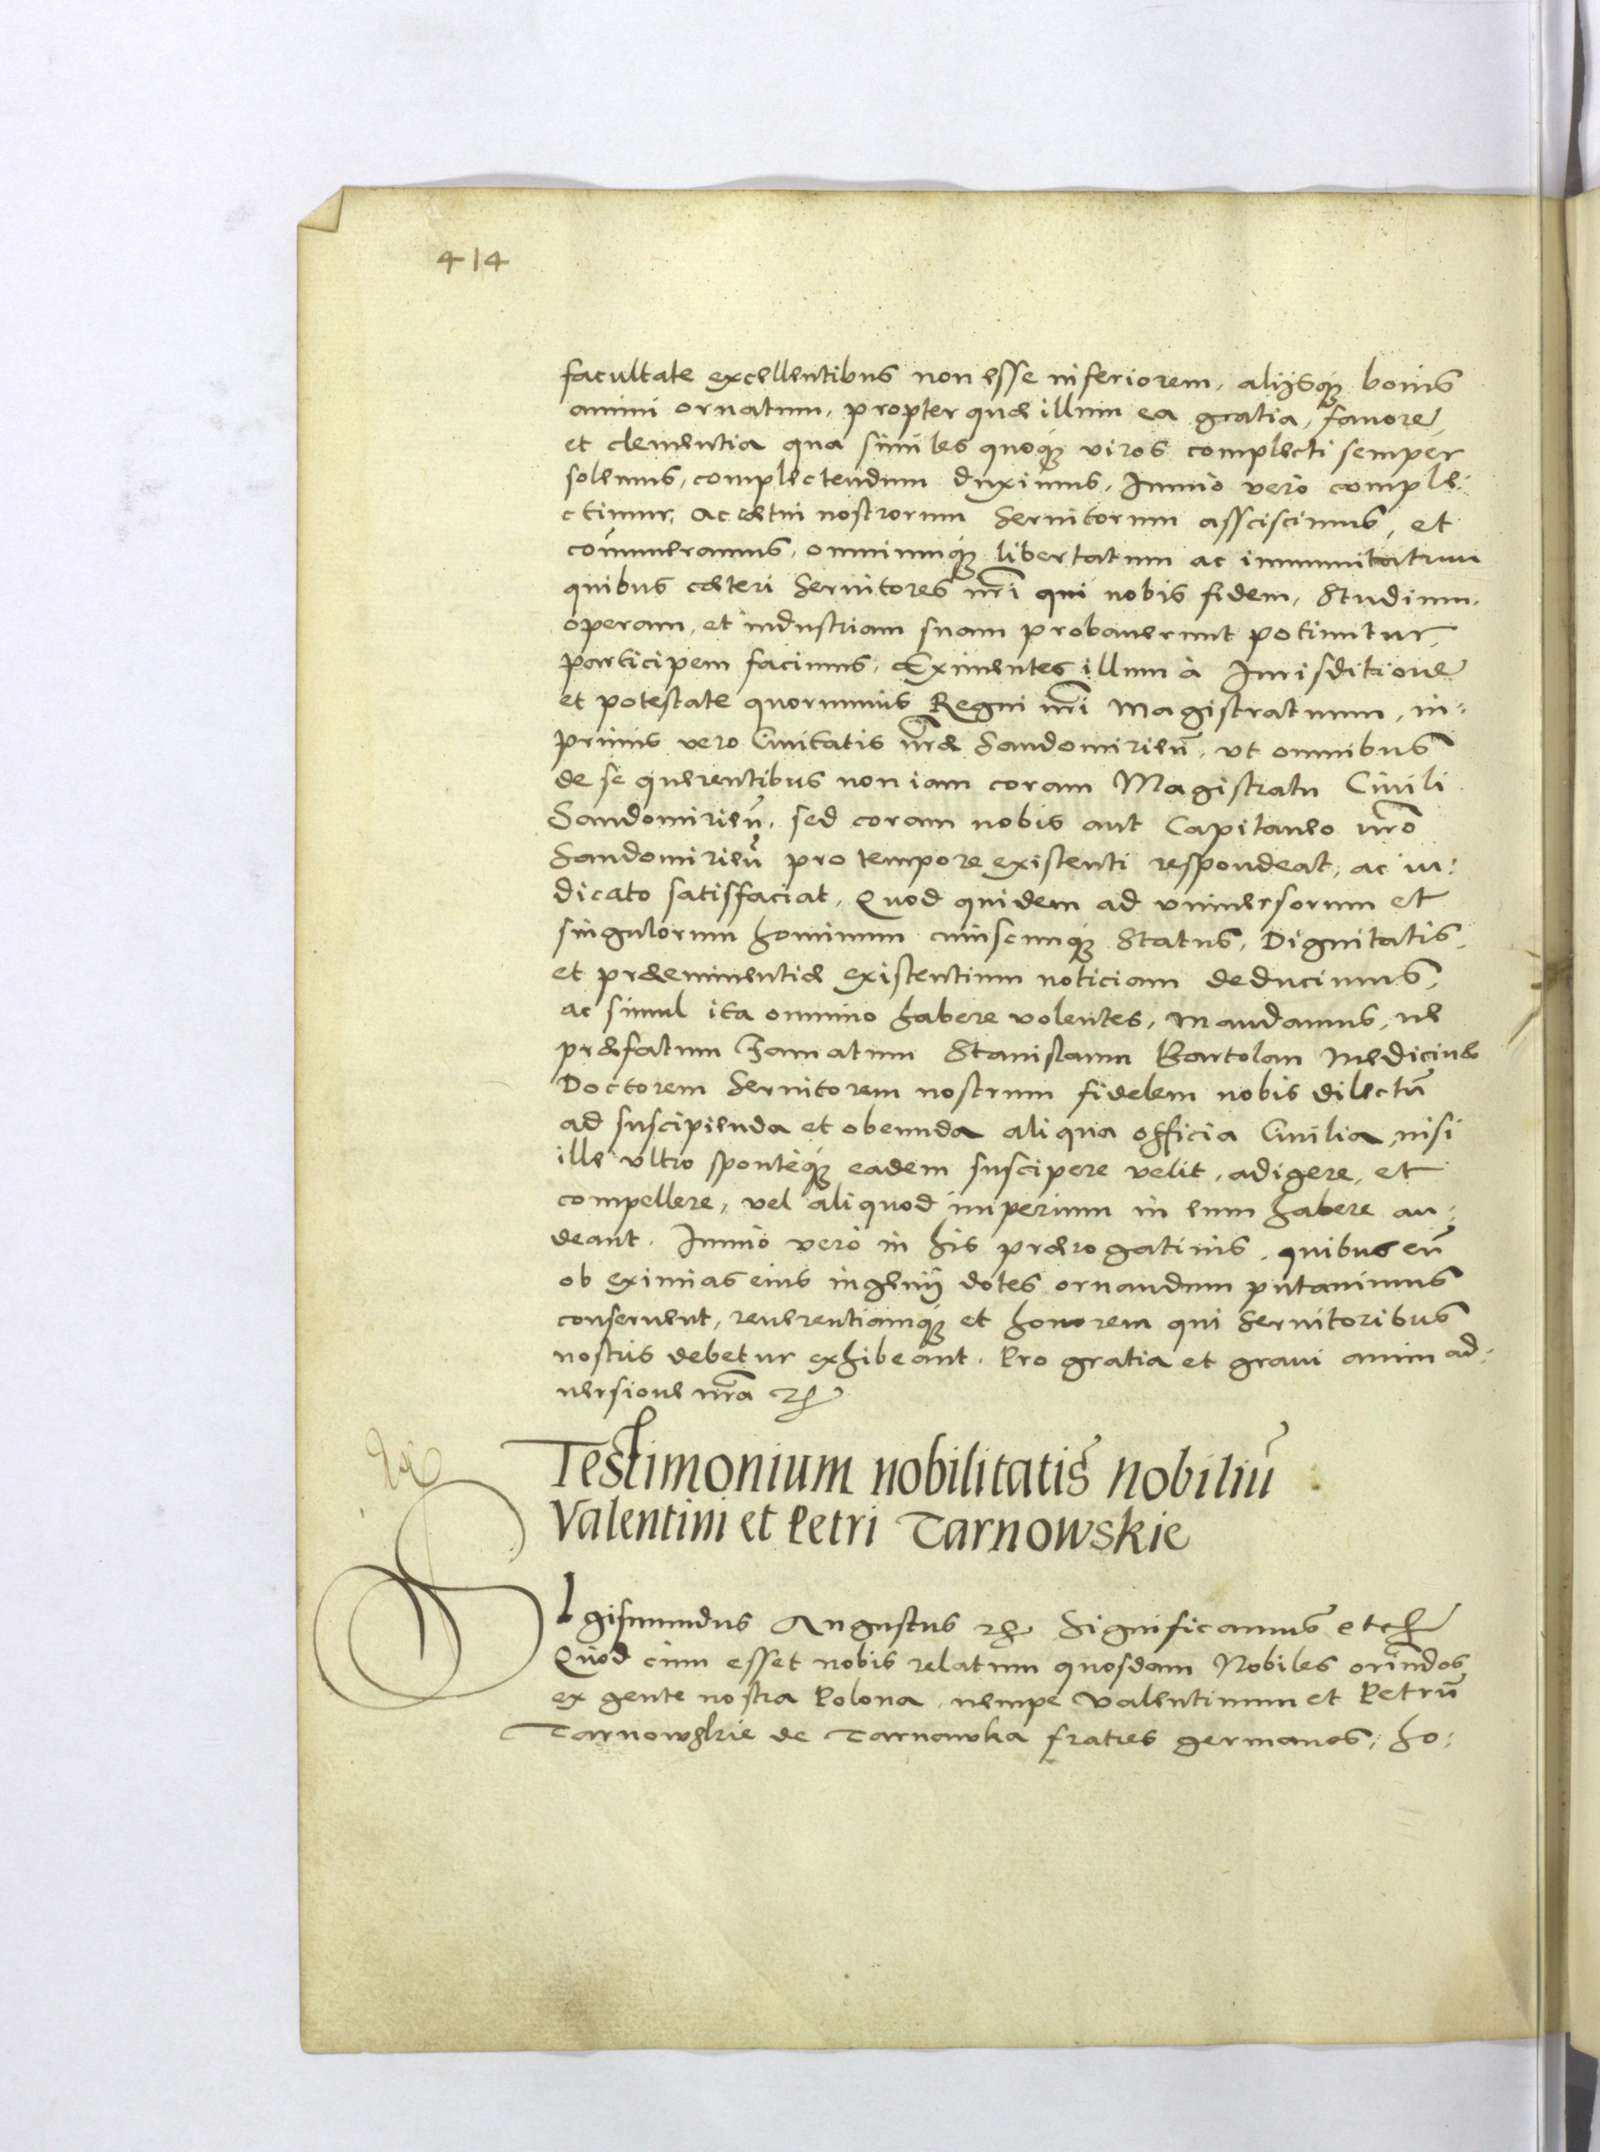 414
facultate excellentibus non esse inferiorem, alijsq́ꝫ bonis
animi ornatum, propter quæ illum ea gratia, fauore,
et clementia qua similes quoqꝫ viros complecti semper
solemus, complectendum duximus, Immo vero comple:
ctimur, ac cætui nostrorum Seruitorum assciscimus, et
cõnumeramus, omniumq́ꝫ libertatum ac immunitatum
quibus cæteri Seruitores nr̃i qui nobis fidem, Studium,
operam, et industriam suam probauerunt potiuntur,
participem facimus, Eximentes illum à Iurisditione
et potestate quorumuis Regni nr̃i Magistratuum, in:
primis vero Ciuitatis nr̃æ Sandomirien̄, vt omnibus
de se querentibus non iam coram Magistratu Ciuili
Sandomirien̄, sed coram nobis aut Capitaneo nr̃o
Sandomirien̄ pro tempore existenti respondeat, ac iu:
dicato satisfaciat, Quod quidem ad vniuersorum et
singulorum hominum cuiscunq́ꝫ Status, Dignitatis,
et præeminentiæ existentium noticiam deducimus,
ac simul ita omnino habere volentes, Mandamus, ne
præfatum Famatum Stanislaum Bartolan Medicinæ
Doctorem Seruitorem nostrum fidelem nobis dilectū
ad suscipienda et obeunda aliqua officia Ciuilia, nisi
ille vltro sponteq́ꝫ eadem suscipere velit, adigere, et
compellere, vel aliquod imperium in eum habere au:
deant. Immo vero in his prærogatiuis, quibus eū
ob eximias eius ingenij dotes ornandum putauimus
conseruent, reuerentiamq́ꝫ et honorem qui Seruitoribus
nostris debetur exhibeant. Pro gratia et graui animad:
uersione nr̃a ꝛc̃
Testimonium nobilitatis nobiliū
Valentini et Petri Tarnowskie
SIgismundus Augustus ꝛc̃ Significamus etc̃
Quod cum esset nobis relatum quosdam Nobiles oriundos
ex gente nostra Polona, nempe Valentinum et Petrū
Tarnowskie de Tarnawka fratres germanos, ho: